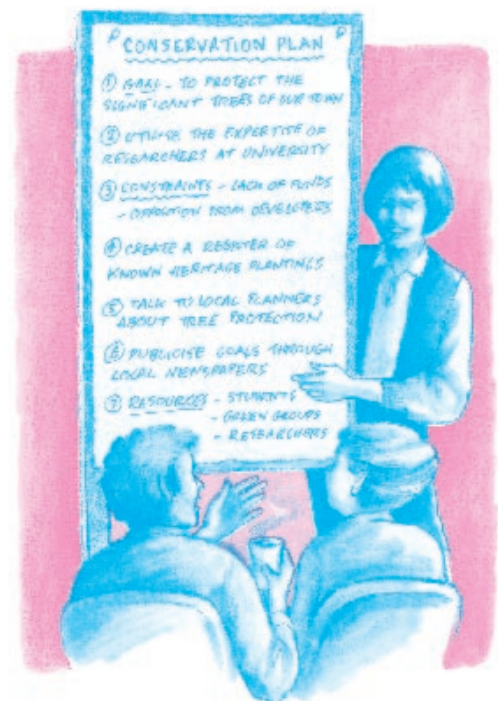 CONSERVATION PLAN
① GOAL - TO PROTECT THE
SIGNIFICANT TREES OF OUR TOWN
② UTILISE THE EXPERTISE OF
RESEARCHERS AT UNIVERSITY
③ CONSTRAINTS - LACK OF FUNDS
- OPPOSITION FROM DEVELOPERS
④ CREATE A REGISTER OF
KNOWN HERITAGE PLANTINGS
⑤ TALK TO LOCAL PLANNERS
ABOUT TREE PROTECTION
⑥ PUBLICISE GOALS THROUGH
LOCAL NEWSPAPERS
⑦ RESOURCES - STUDENTS
- GREEN GROUPS
- RESEARCHERS